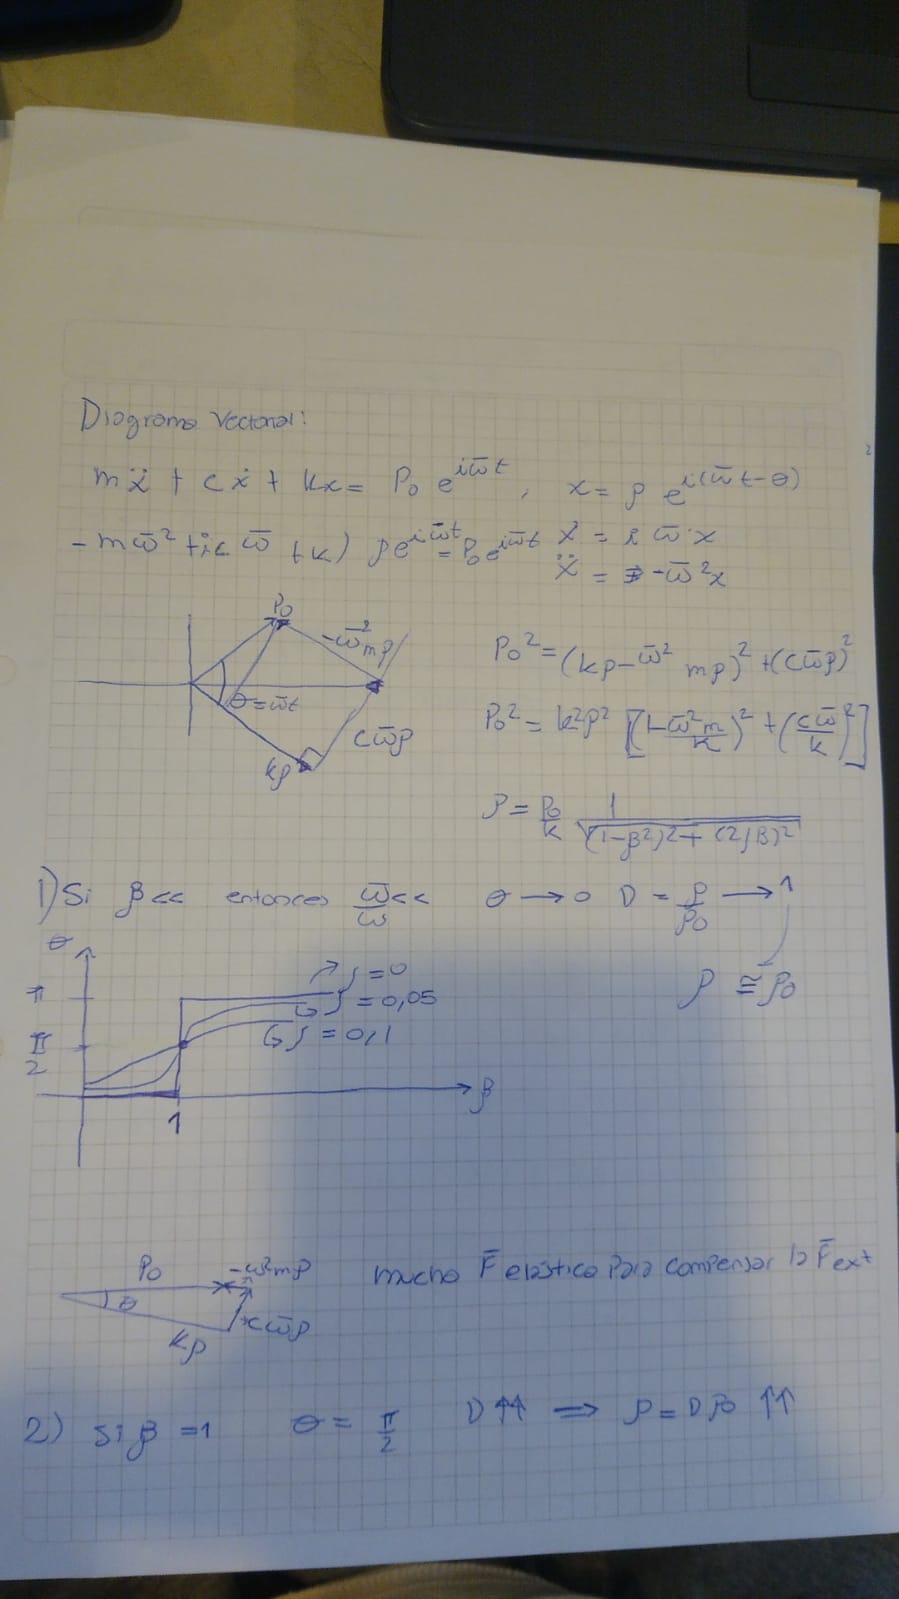 Diagrama Vectorial:
mẍ + cẋ + kx = P₀ e^{iω̄t} , x = ρ e^{i(ω̄t-θ)}
-mω̄² + ic ω̄ + k) ρe^{iω̄t} = P₀e^{iω̄t} ẋ = i ω̄ x
ẍ = -ω̄²x
P₀
-ω̄²mρ
θ=ω̄t
cω̄ρ
kρ
P₀² = (kρ-ω̄² mρ)² + (cω̄ρ)²
P₀² = k²ρ² [(1-ω̄²m/k)² + (cω̄/k)²]
ρ = P₀/k 1/√((1-β²)² + (2ζβ)²)
1) Si β<< entonces ω̄/ω << θ → 0 D = ρ/ρ₀ → 1
ρ ≅ ρ₀
θ
π
π/2
ζ=0
ζ=0,05
ζ=0,1
1
β
P₀
-ω̄²mρ
θ
cω̄ρ
kρ
mucha F̄ elástica para compensar la F̄ext
2) Si β =1 θ = π/2 D↑↑ ⇒ ρ = Dρ₀ ↑↑